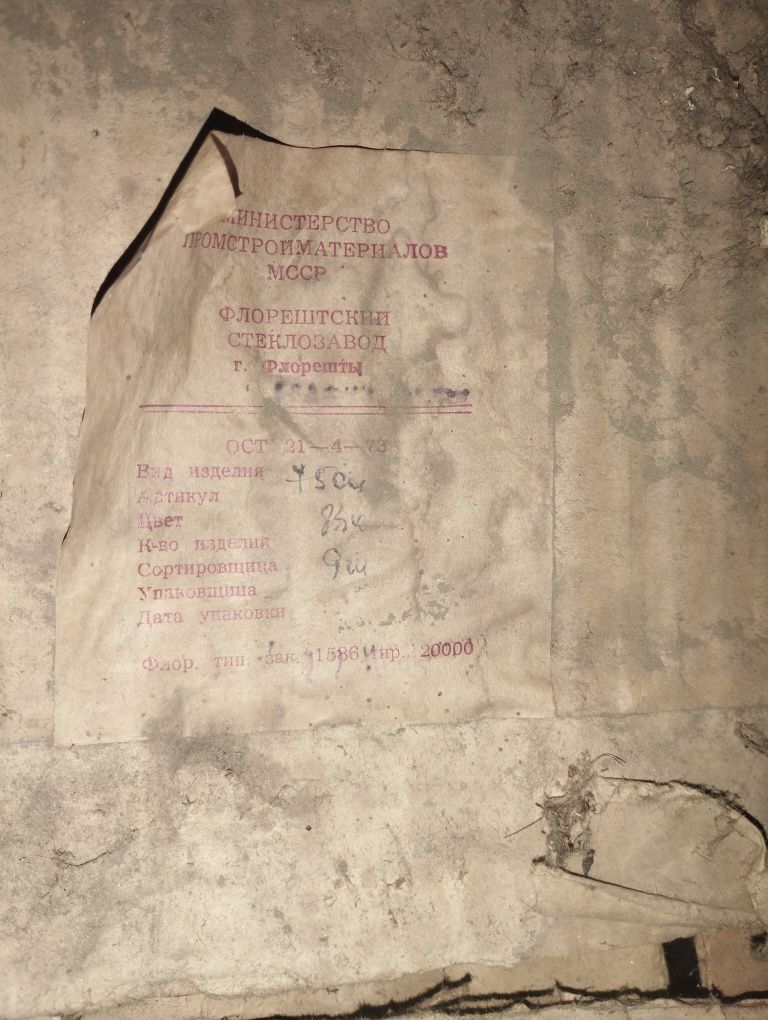 МИНИСТЕРСТВО
ПРОМСТРОЙМАТЕРИАЛОВ
МССР
ФЛОРЕШТСКИЙ
СТЕКЛОЗАВОД
г. Флорешты
ОСТ 21—4—73
Вид изделия
Артикул
Цвет
К-во изделий
Сортировщица 9
Упаковщица
Дата упаковки
Флор. тип. зак. 1586 тир. 20000